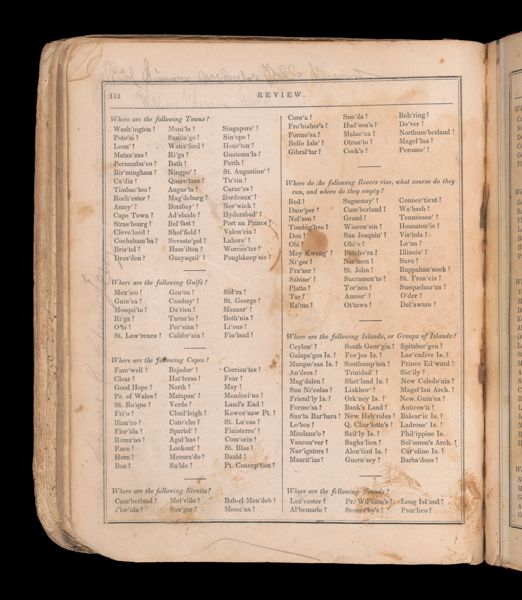 112
REVIEW.
Where are the following Towns?
Wash'ington? Mani'la? Singapore'?
Poto'si? Santia'go? Sin'ope?
Leon'? Wa'terford? Hous'ton?
Matan'zas? Ri'ga? Guatema'la?
Pernambu'co? Bath? Perth?
Bir'mingham? Ningpo'? St. Augustine'?
Ca'diz? Quere'taro? Tu'rin?
Timbuc'too? Augus'ta? Carac'as?
Roch'ester? Mag'deburg? Bordeaux'?
Amoy'? Bombay'? Nor'wich?
Cape Town? Ad'elaide? Hyderabad'?
Stras'bourg? Bel'fast? Port au Prince?
Cleve'land? Shef'field? Valen'cia?
Cochabam'ba? Sevasto'pol? Lahore'?
Bris'tol? Ham'ilton? Worces'ter?
Dres'den? Guayaquil'? Poughkeep'sie?
Where are the following Gulfs?
Mex'ico? Gen'oa? Sid'ra?
Guin'ea? Cambay'? St. George?
Mosqui'to? Da'rien? Manaar'?
Ri'ga? Taran'to? Both'nia?
O'bi? Per'sian? Li'ons?
St. Law'rence? Califor'nia? Fin'land?
Where are the following Capes?
Fare'well? Bajador'? Corrien'tes?
Clear? Hat'teras? Fear?
Good Hope? North? May?
Pr. of Wales? Matapan'? Mendoci'no?
St. Ro'que? Verde? Land's End?
Fri'o? Chud'leigh? Keweenaw Pt.?
Blan'co? Cato'che? St. Lu'cas?
Flor'ida? Spartel'? Finisterre'?
Roma'ne? Agul'has? Com'orin?
Pa'ez? Lookout'? St. Blas?
Horn? Mesura'do? Bauld?
Bon? Sa'ble? Pt. Concep'tion?
Where are the following Straits?
Cum'berland? Mel'ville? Bab-el Man'deb?
Flor'ida? San'gar? Messi'na?
Core'a? Sun'da? Beh'ring?
Fro'bisher's? Hud'son's? Do'ver?
Formo'sa? Malac'ca? Northum'berland?
Belle Isle'? Otran'to? Magel'lan?
Gibral'tar? Cook's?
Where do the following Rivers rise, what course do they
run, and where do they empty?
Red? Saguenay'? Connec'ticut?
Dnie'per? Cum'berland? Wa'bash?
Nel'son? Grand? Tennessee'?
Tombig'bee? Wiscon'sin? Housaton'ic?
Don? San Joaquin'? Vis'tula?
Obi? Ohi'o? Le'na?
May Kwang'? Petcho'ra? Illinois'?
Ni'ger? Nie'men? Save?
Fra'zer? St. John? Rappahan'nock?
Sabine'? Sacramen'to? St. Fran'cis?
Platte? Tor'nea? Susquehan'na?
Tar? Amoor'? O'der?
Ka'ma? Ot'tawa? Del'aware?
Where are the following Islands, or Groups of Islands?
Ceylon'? South Geor'gia? Spitzber'gen?
Galapa'gos Is.? Fee'jee Is.? Laccadive Is.?
Marque'sas Is.? Southamp'ton? Prince Ed'ward?
An'dros? Trinidad'? Sic'ily?
Mag'dalen? Shet'land Is.? New Caledo'nia?
San Nicolas? Liakhov'? Magel'lan Arch.?
Friend'ly Is.? Ork'ney Is.? New Guin'ea?
Formo'sa? Bank's Land? Anticos'ti?
San'ta Bar'bara? New Heb'rides? Balear'ic Is.?
Lo'bos? Q. Char'lotte's? Ladrone' Is.?
Mindana'o? Scil'ly Is.? Phil'ippine Is.
Vancou'ver? Sagha'lien? Sol'omon's Arch.?
Nav'igators? Aleu'tian Is.? Car'oline Is.?
Maurit'ius? Guern'sey? Barba'does?
Where are the following Sounds?
Lan'caster? Pr. Wil'liam's? Long Isl'and?
Al'bemarle? Scores'by's? Pam'lico?